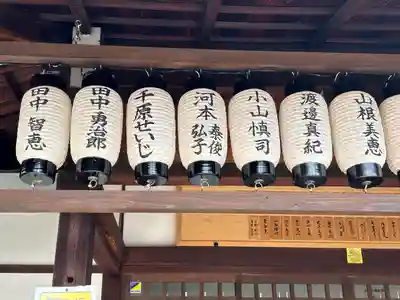 田中 智恵
田中 勇治郎
千原せいじ
河本 泰俊
弘子
小山慎司
渡邉真紀
山根美恵